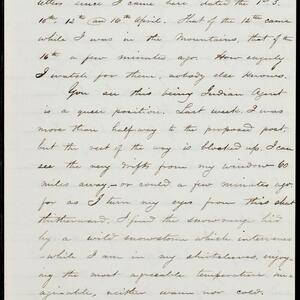 letters since I came here dated the 1st 5.
10th 12th and 16th April. That of the 12th came
while I was in the Mountains, that of the
16th a few minutes ago. How eagerly
I watch for them, nobody else knows.
You see this being Indian Agent
is a queer position. Last week, I was
more than half way to the proposed post
but the rest of the way is blocked up. I can
see the very drifts from my window 60
miles away – or could a few minutes ago,
for as I turn my eyes from this sheet
thitherward, I find the snow range hid
by a wild snowstorm which intervenes
– while I am in my shirtsleeves, enjoy-
ing the most agreeable temperature im-
aginable, neither warm nor cold.